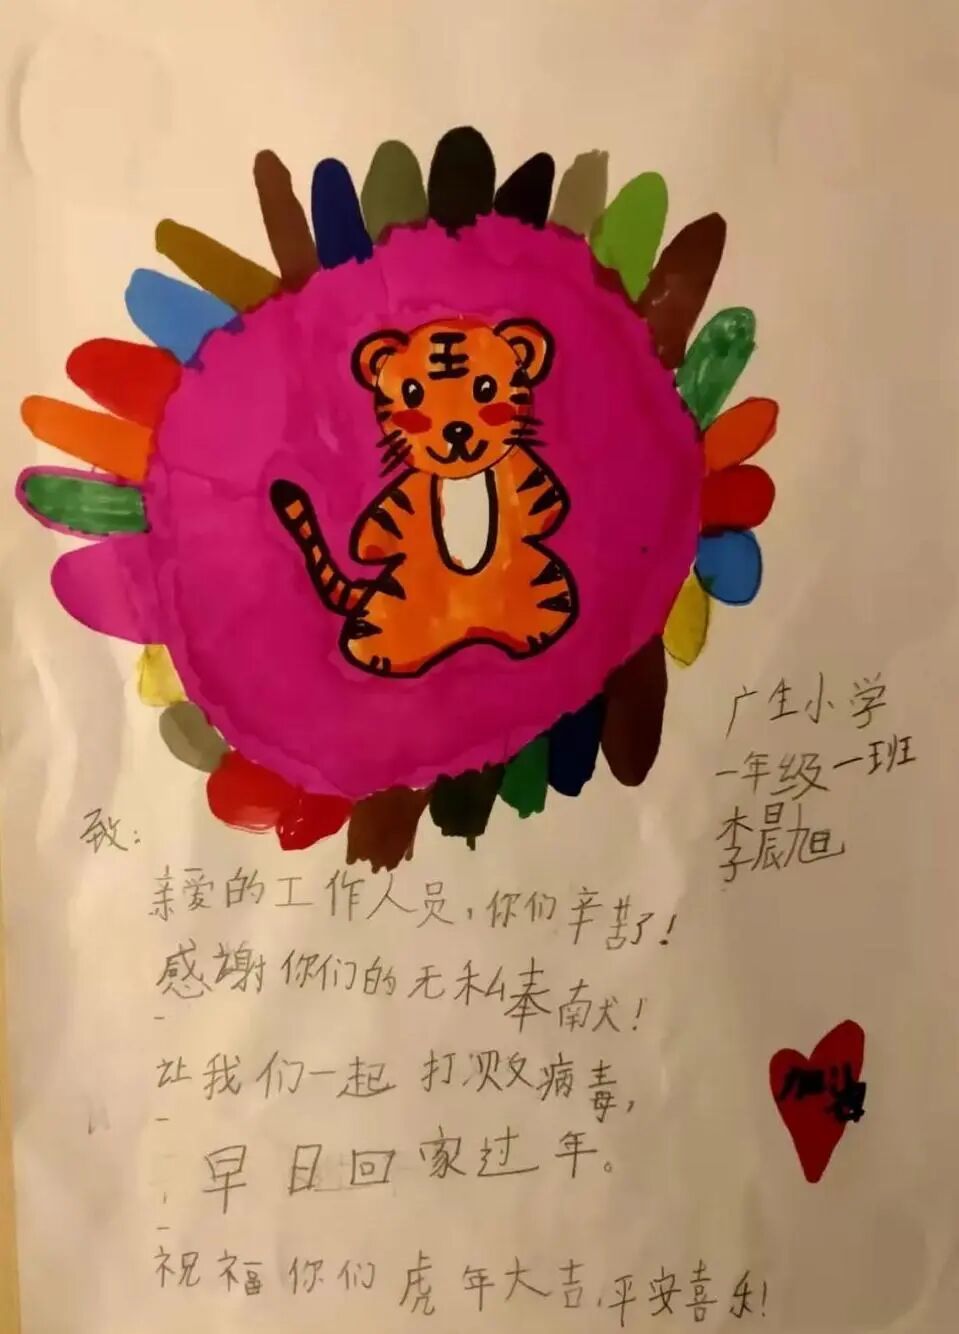 王
广生小学
一年级一班
李晨旭
致：
亲爱的工作人员，你们辛苦了！
感谢你们的无私奉献！
让我们一起打败病毒，
早日回家过年。
祝福你们虎年大吉、平安喜乐！
加油